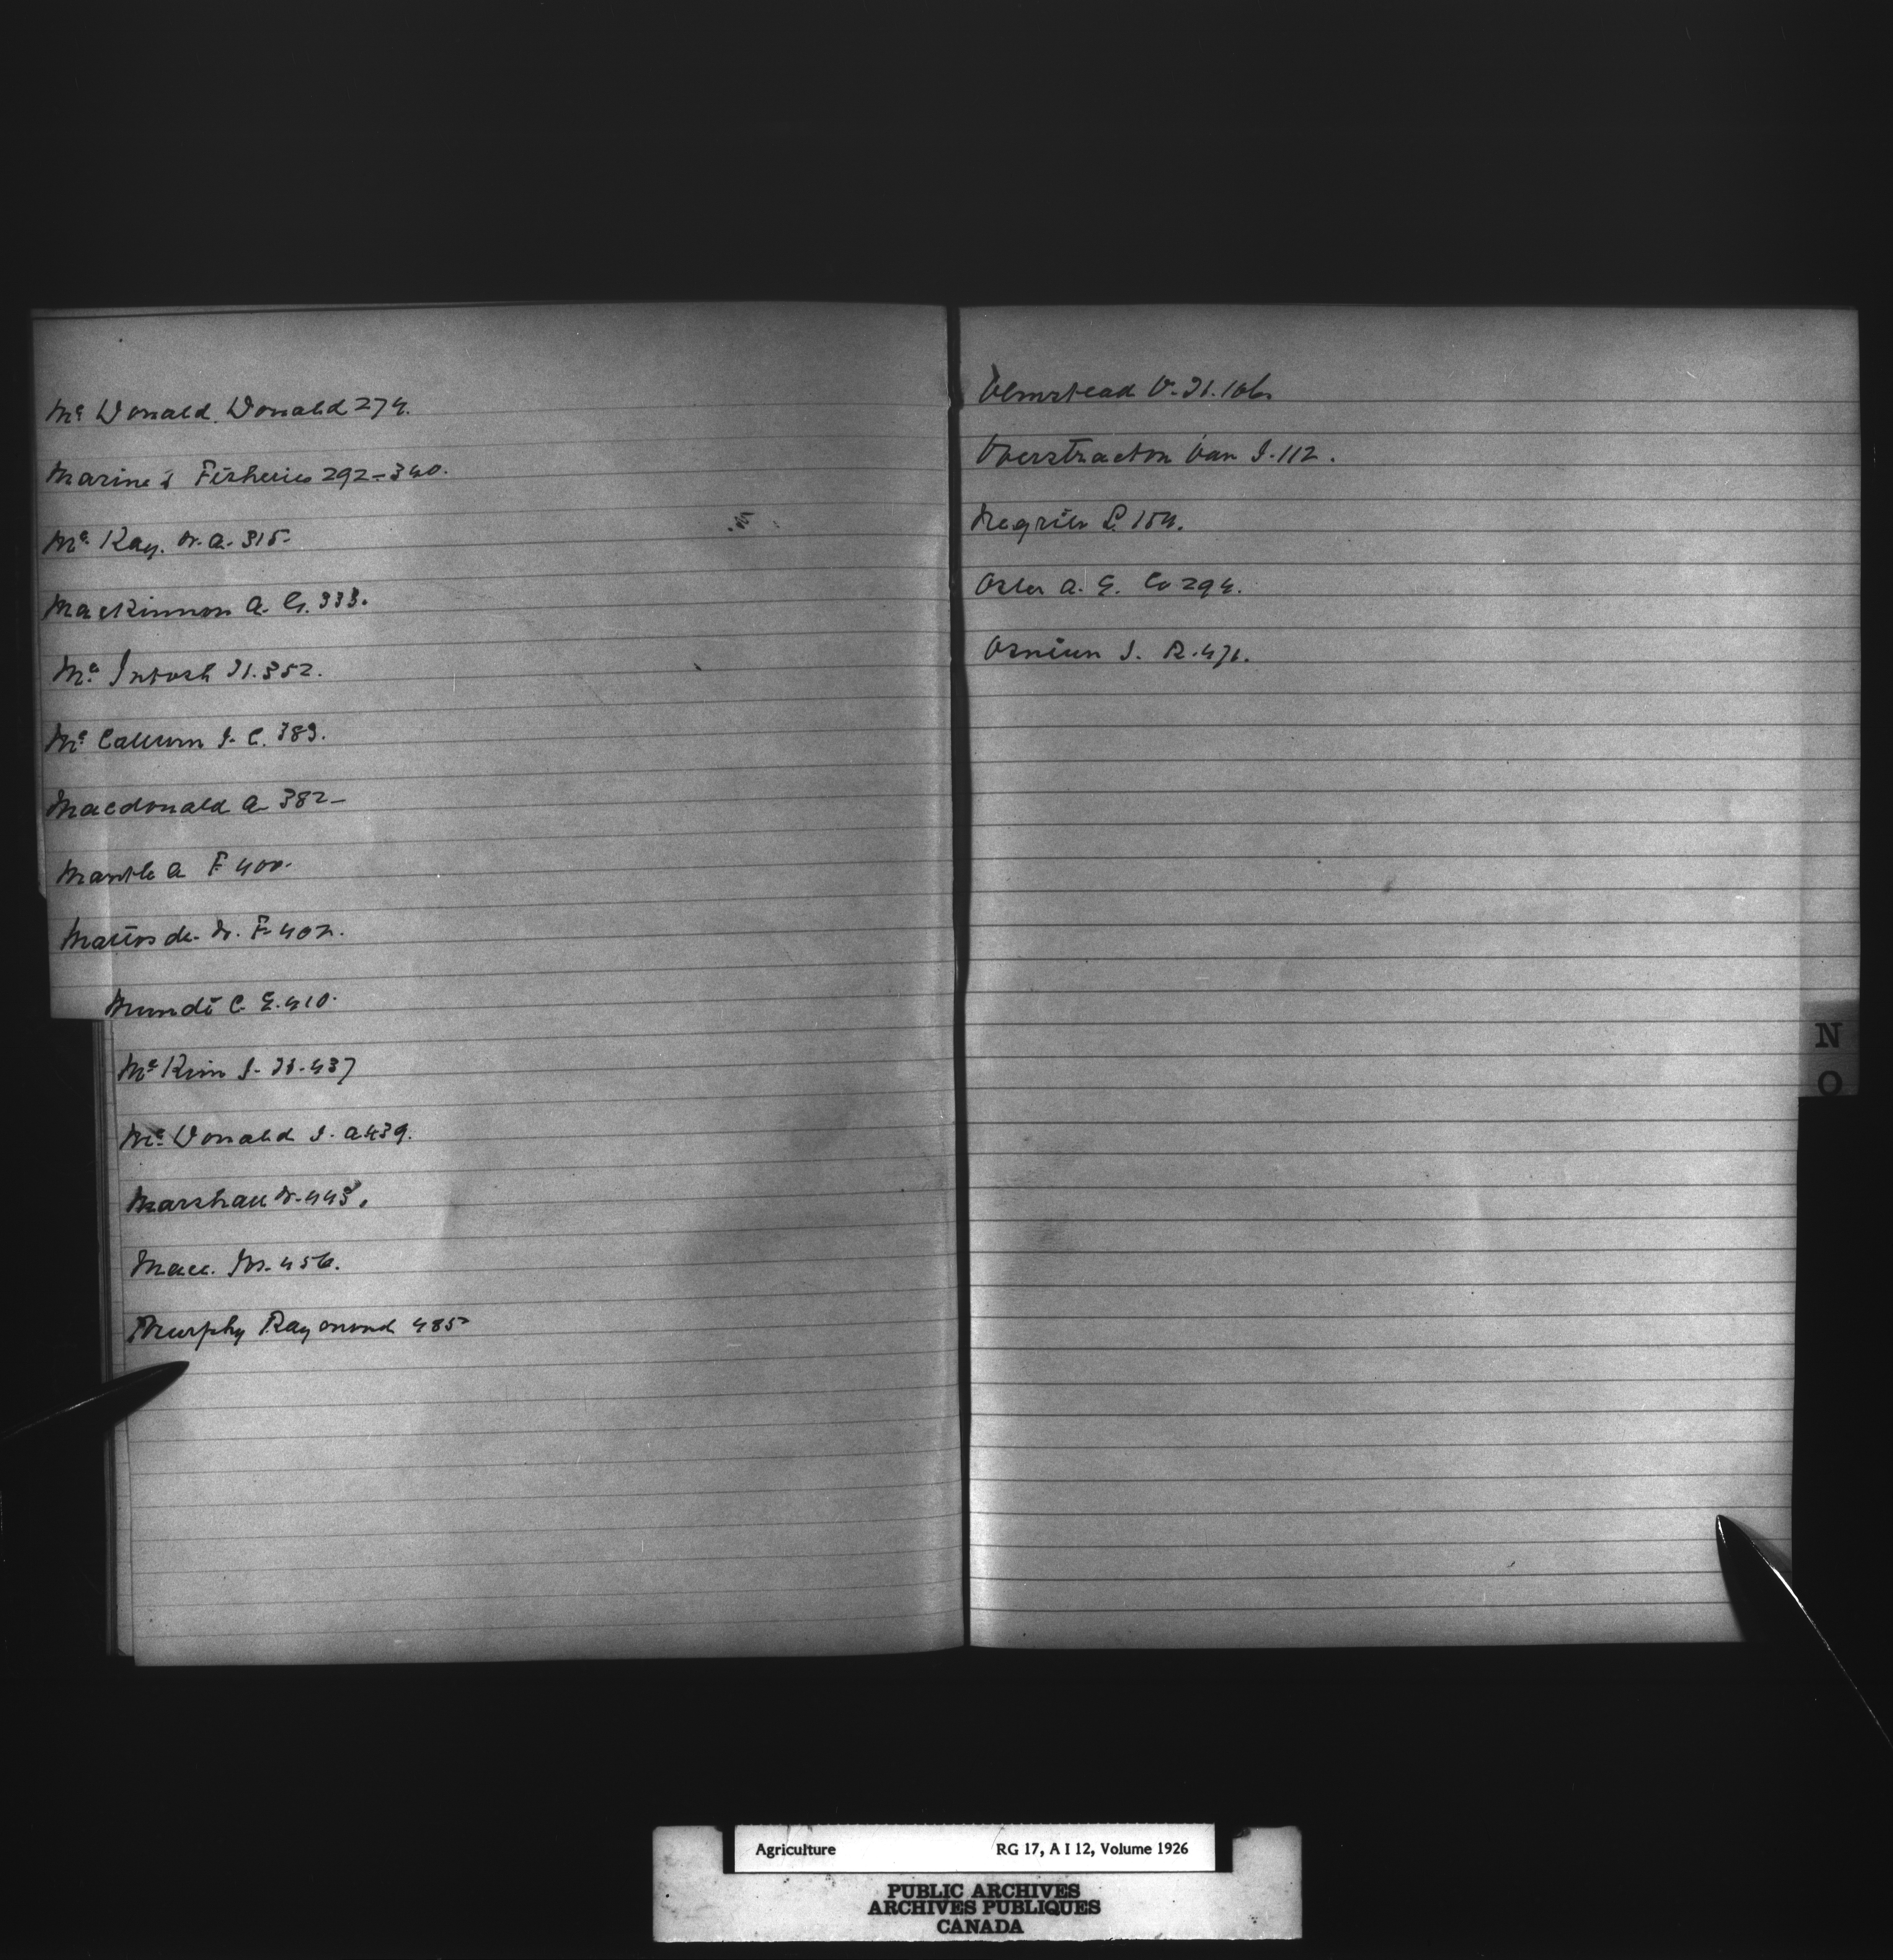 Mc Donald Donald 274.
Marine & Fisheries 292-340.
Mc Kay. W. A. 315-
MacKinnon A. G. 333.
Mc Intosh H. 352.
Mc Callum J. C. 383.
Macdonald A 382-
Mantle A F 400.
Mattos de. W. F. 402.
Mundi C. E. 410.
Mc Kim J. H. 437
Mc Donald J. A 439.
Marshall W. 445.
456.
Murphy Raymond 485-
Olmstead V. H. 106.
Overstracton Van J. 112.
Negrier L. 154.
Osler A. E. Co 294.
J. R. 471.
N
O
Agriculture RG 17, A I 12, Volume 1926
PUBLIC ARCHIVES
ARCHIVES PUBLIQUES
CANADA